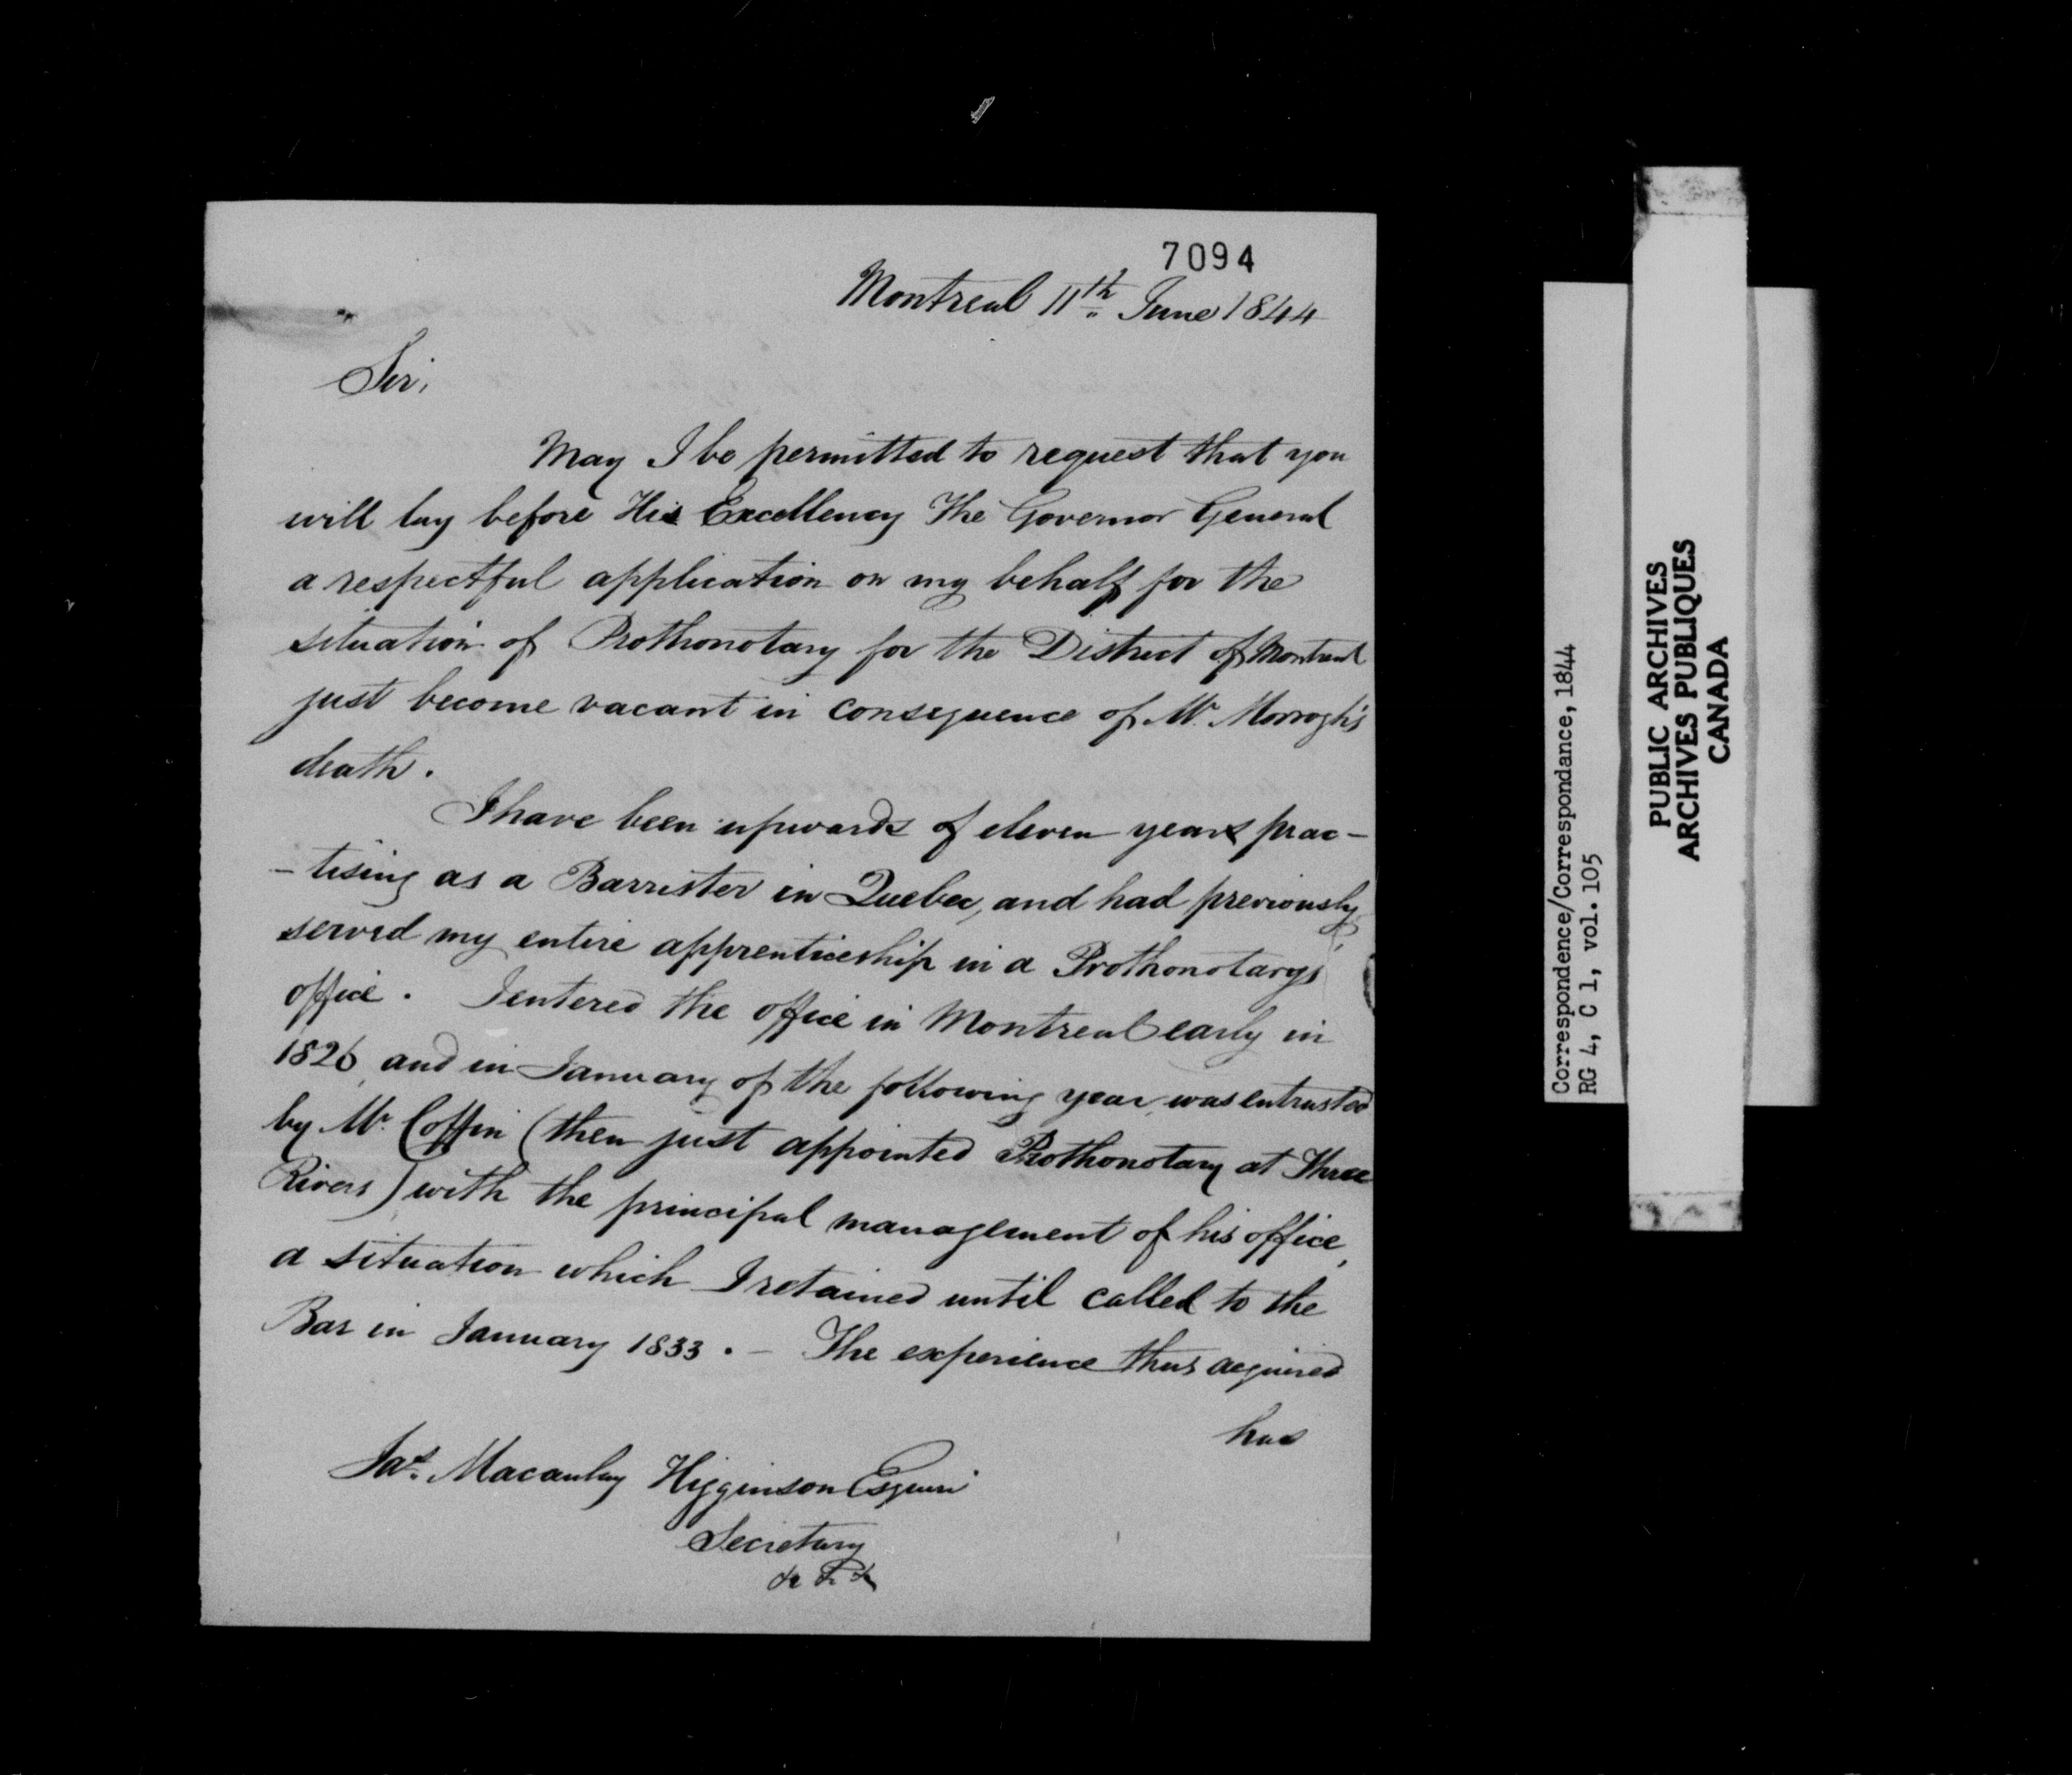 7094
Montreal 11th June 1844
Sir,
May I be permitted to request that you
will lay before His Excellency The Governor General
a respectful application on my behalf for the
situation of Prothonotary for the District of Montreal
just become vacant in consequence of Mr. Morrogh's
death.
I have been upwards of eleven years prac-
-tising as a Barrister in Quebec, and had previously
served my entire apprenticeship in a Prothonotarys
office. I entered the office in Montreal early in
1826, and in January of the following year, was entrusted
by Mr. Coffin (then just appointed Prothonotary at Three
Rivers) with the principal management of his office,
a situation which I retained until called to the
Bar in January 1833. - The experience thus acquired
has
Jas. Macaulay Higginson Esquire
Secretary
&c &c &c
Correspondence/Correspondance, 1844
RG 4, C 1, vol. 105
PUBLIC ARCHIVES
ARCHIVES PUBLIQUES
CANADA